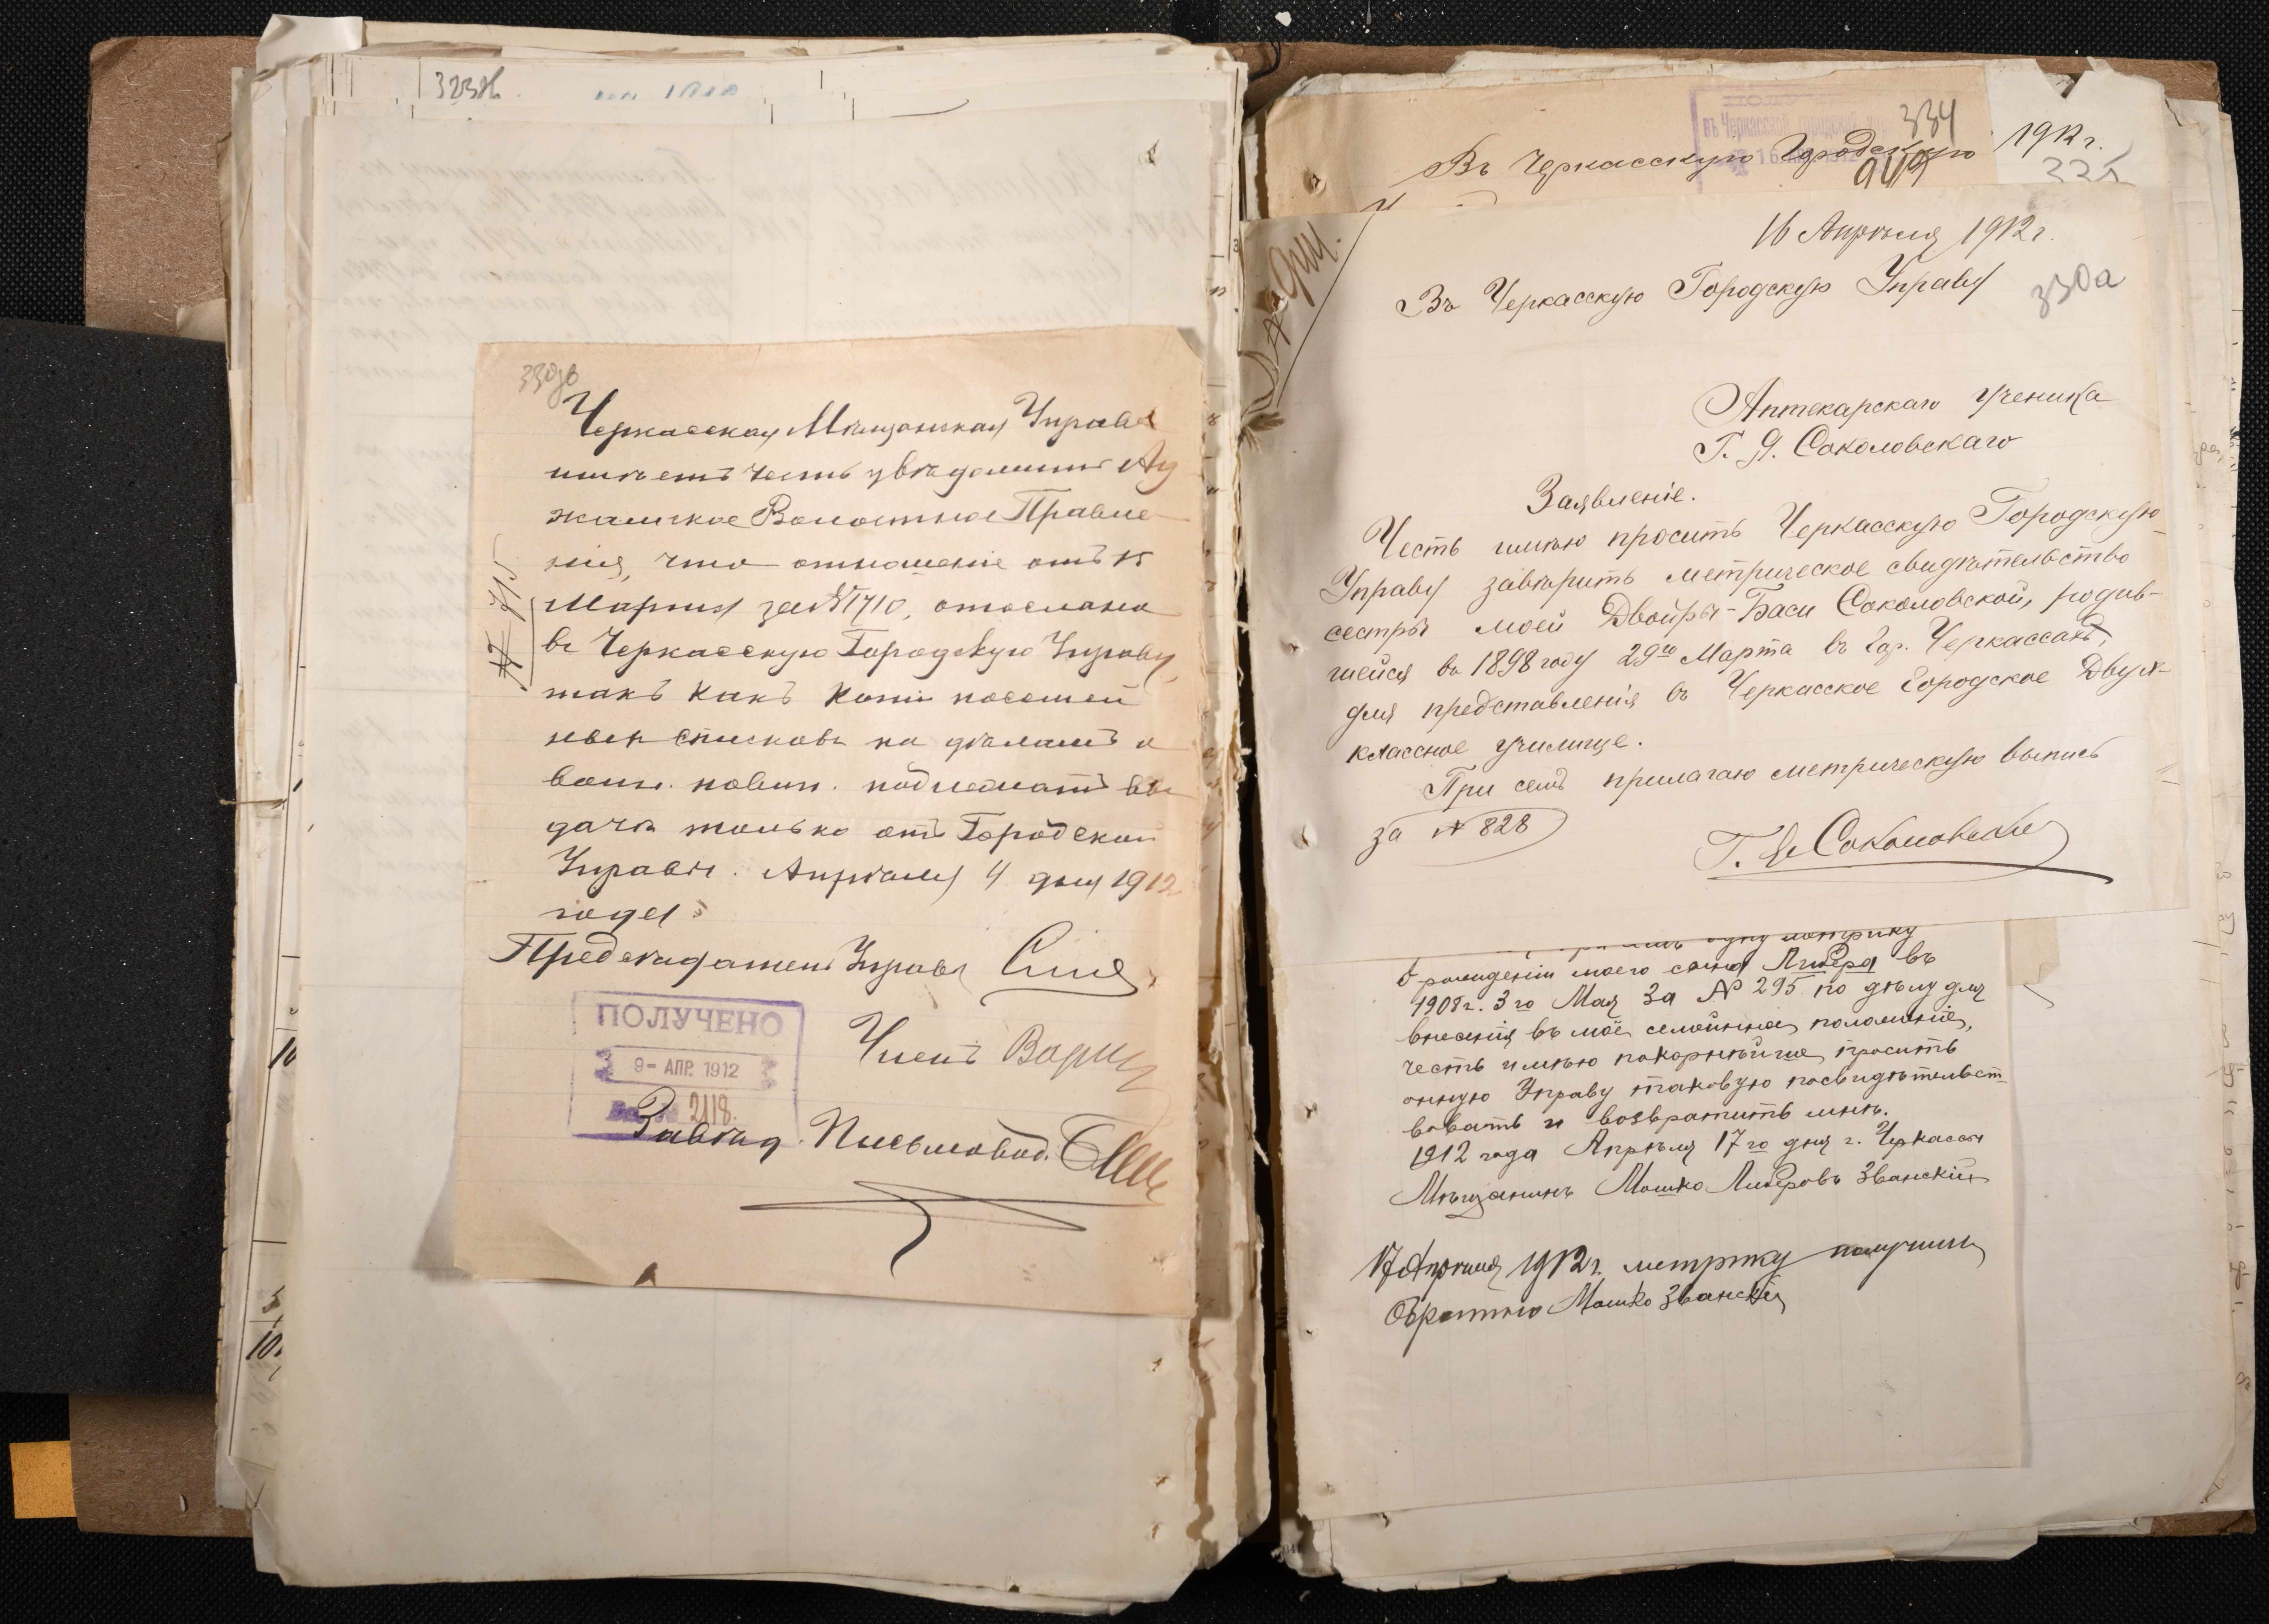 330б
Черкасская Мѣщанская Управа
имѣетъ честь увѣдомить
жамское Волостное Правле
нія, что отношеніе отъ 15
Марта за № 1710, отослано
въ Черкасскую Городскую Управу,
такъ какъ копіи посемей
ныхъ списковъ по дѣламъ о
воин. повин. подлежатъ вы
дачѣ только отъ Городской
Управы. Апрѣля 4 дня 1912
года.
№ 715
Предсѣдатель Управы
ПОЛУЧЕНО
9- АПР. 1912
2118.
Членъ
Завѣд. Письмовод.
334
1912 г.
Въ Черкасскую Городскую
16 Апрѣля 1912 г.
330а
Въ Черкасскую Городскую Управу
Аптекарскаго ученика
Г. Я. Соколовскаго
Заявленіе.
Честь имѣю просить Черкасскую Городскую
Управу завѣрить метрическое свидѣтельство
сестры моей Двойры-Баси Соколовской, родив-
шейся въ 1898 году 29го Марта въ гор. Черкассахъ,
для представленія въ Черкасское Городское Двух-
классное училище.
При семъ прилагаю метрическую выпись
за № 828
Г. Я. Соколовскій
одну метрику
о рожденіи моего сына Либера въ
1908 г. 3го Мая за № 295 по дѣлу для
внесенія въ моё семейное положеніе,
честь имѣю покорнѣйше просить
онную Управу таковую посвидѣтельст-
вовать и возвратить мнѣ.
1912 года Апрѣля 17го дня г. Черкассы
Мѣщанинъ Мошко Либеровъ Званскій
17 Апрѣля 1912 г. метрику получилъ
Обратно Мошко Званскій